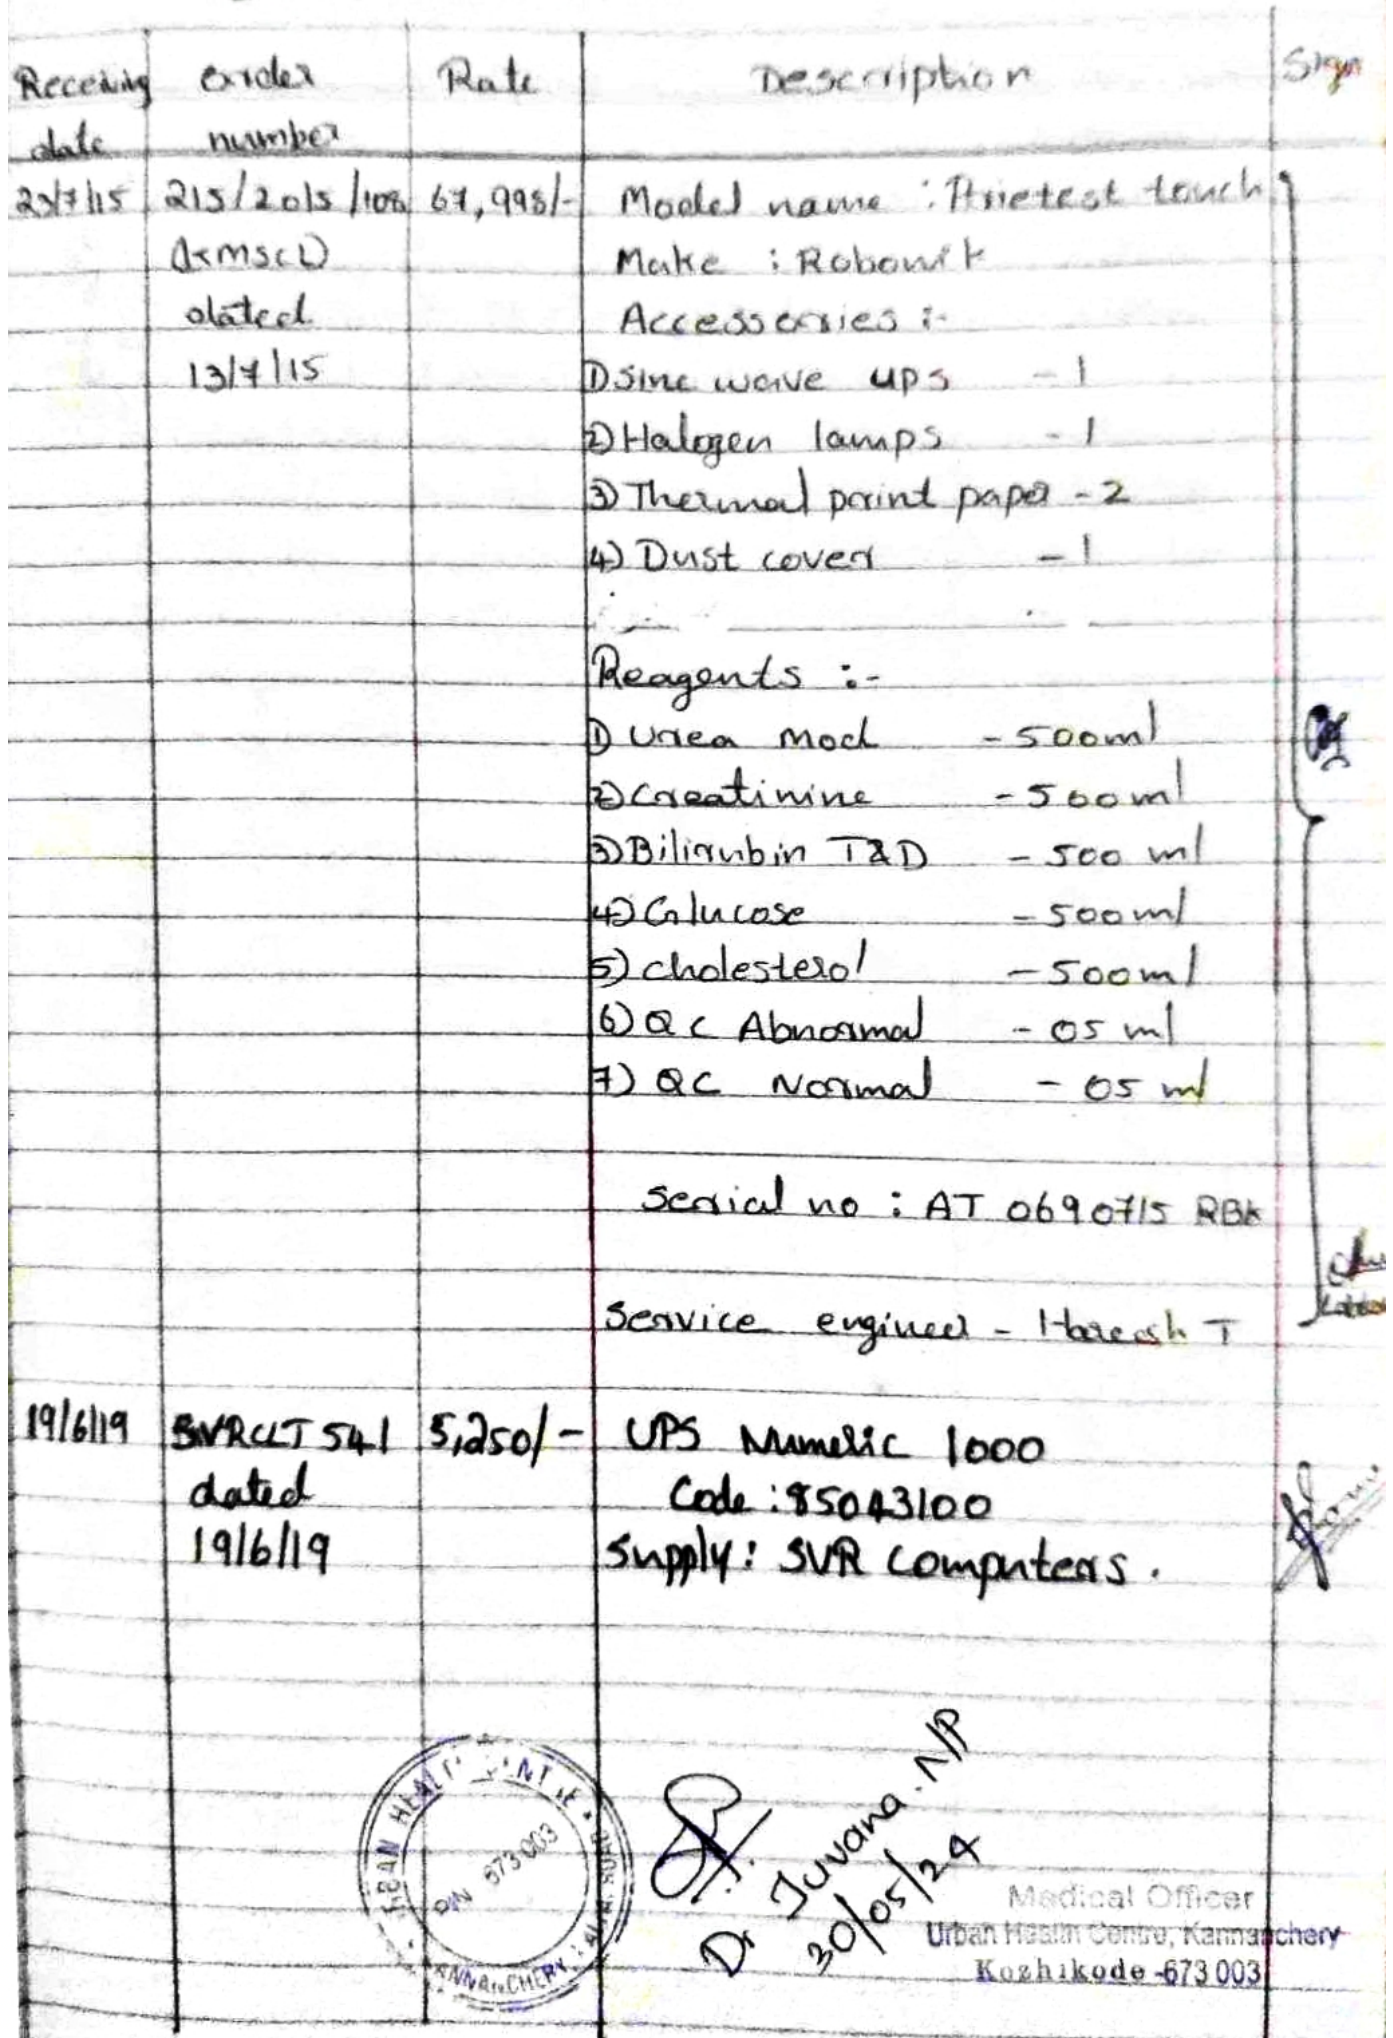 Receiving date | order number | Rate | Description | Sign
23/7/15 | 215/2015/108 | 67,998/- | Model name : Prietest touch
(KMSCL) | Make : Robonik
dated | Accessories :-
13/7/15 | 1) Sine wave ups - 1
2) Halogen lamps - 1
3) Thermal print paper - 2
4) Dust cover - 1
Reagents :-
1) Urea Mod - 500ml
2) Creatinine - 500ml
3) Bilirubin T&D - 500 ml
4) Glucose - 500ml
5) cholesterol - 500ml
6) QC Abnormal - 05 ml
7) QC Normal - 05 ml
Serial no : AT 0690715 RBK
Service engineer - Hareesh T
19/6/19 | SVRCLT 541 | 5,250/- | UPS Numeric 1000
dated | Code : 85043100
19/6/19 | Supply : SVR Computers .
URBAN HEALTH CENTRE
PIN 673 003
KANNANCHERY
Dr Juvana . N/P
30/05/24
Medical Officer
Urban Health Centre, Kannanchery
Kozhikode -673 003